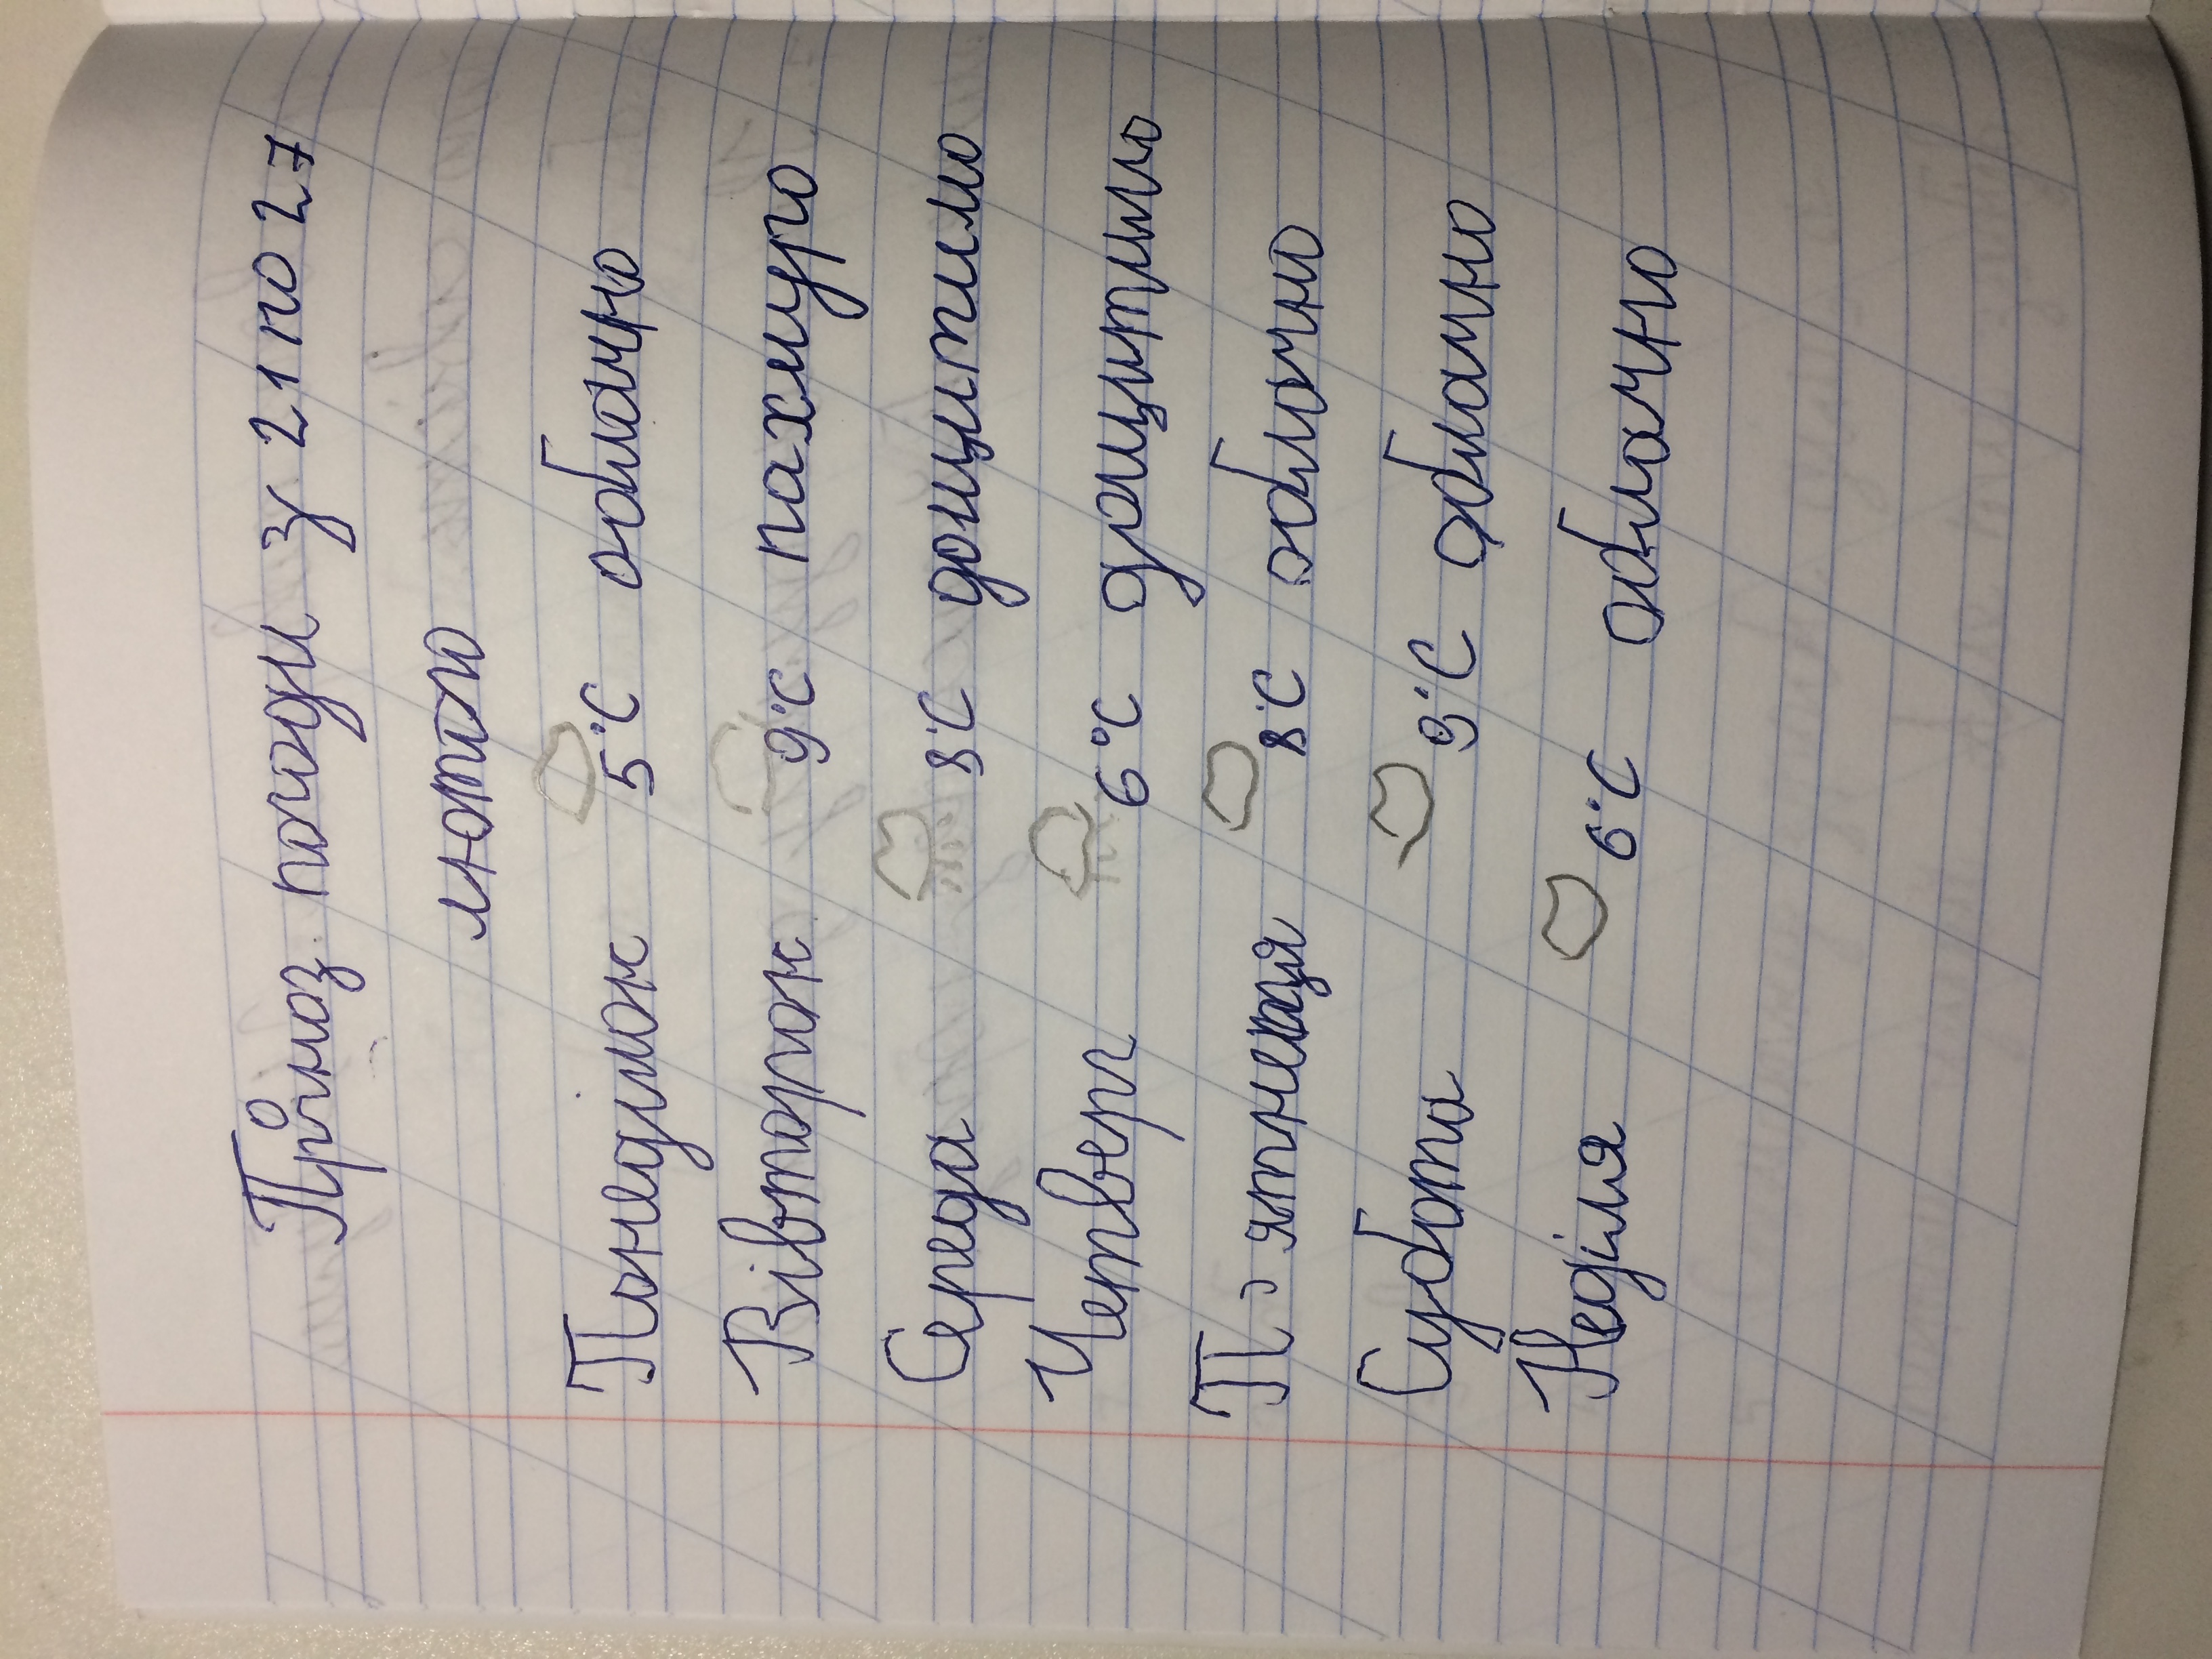 Прогноз погоди з 21 по 27
лютого
Понеділок 5°C облачно
Вівторок 9°C пахмуро
Середа 8°C дощитило
Четверг 6°C дощитило
П'ятнеця 8°C облачно
Субота 9°C облачно
Неділя 6°C облачно